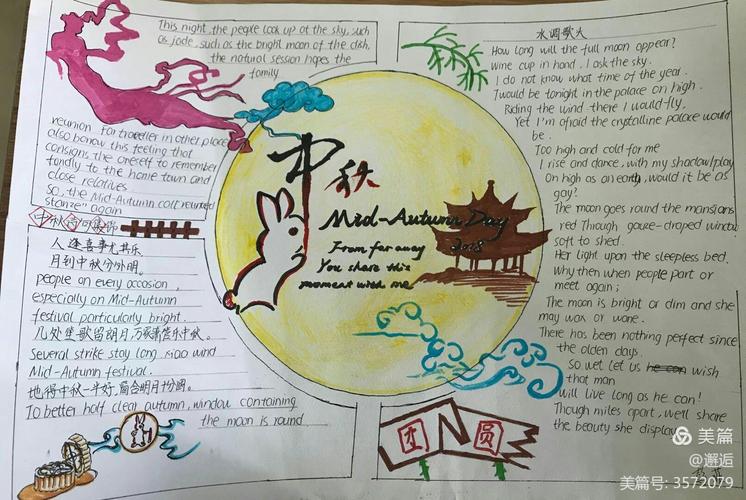 This night, the people look up at the sky, such
as jade, such as the bright moon of the dish,
the natural session hopes the
family
reunion. Far traveller in other place
also borrow this feeling that
consigns the oneself to remember
fondly to the home town and
close relatives
So, the Mid-Autumn call reunited
stanza" again
中秋
人逢喜事尤其乐
月到中秋分外明。
people on every occasion,
especially on Mid-Autumn
festival particularly bright.
几处笙歌留朗月,万家箫管乐中秋。
Several strike stay long, xiao wind
Mid-Autumn festival.
地得中秋一半好,窗含明月十分圆。
To better half clear autumn, window containing
the moon is round
中秋
Mid-Autumn Day
2018
From far away
You share this
moment with me
水调歌头
How long will the full moon appear?
Wine cup in hand. I ask the sky.
I do not know what time of the year.
I would be tonight in the palace on high.
Riding the wind there I would fly,
Yet I'm afraid the crystalline palace would
be.
Too high and cold for me
I rise and dance, with my shadow play
On high as on earth, would it be as
gay?
The moon goes round the mansions
red Through gauze-draped window
soft to shed.
Her light upon the sleepless bed.
Why then when people part or
meet again;
The moon is bright or dim and she
may wax or wane.
There has been nothing perfect since
the olden days.
So wet let us he can wish
that man
will live long as he can!
Though miles apart, we'll share
the beauty she display
团圆
美篇
@邂逅
美篇号: 3572079